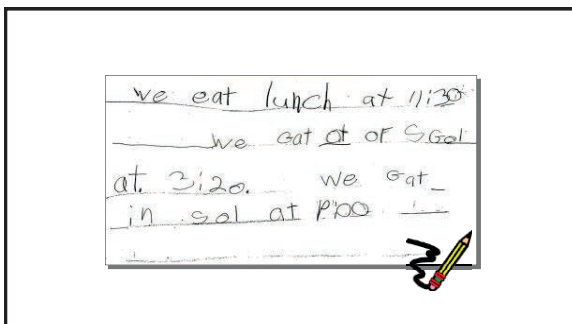 we eat lunch at 11:30
we Gat ot or SGol
at. 3:20. we Gat
in sol at 8:00